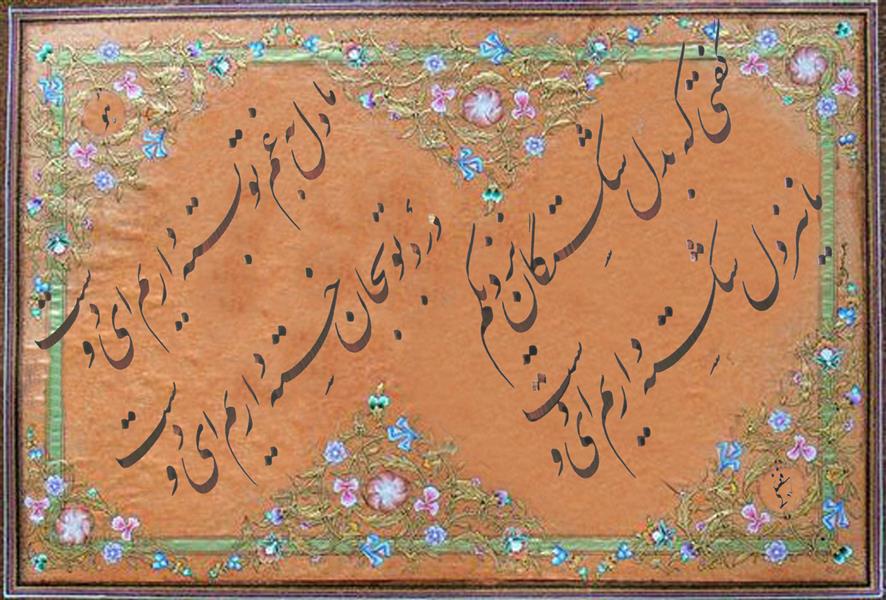 هو
ما دل به غم تو بسته داریم ای دوست
درد تو بجان خسته داریم ای دوست
گفتی که بدل شکستگان نزدیکم
ما نیز دل شکسته داریم ای دوست